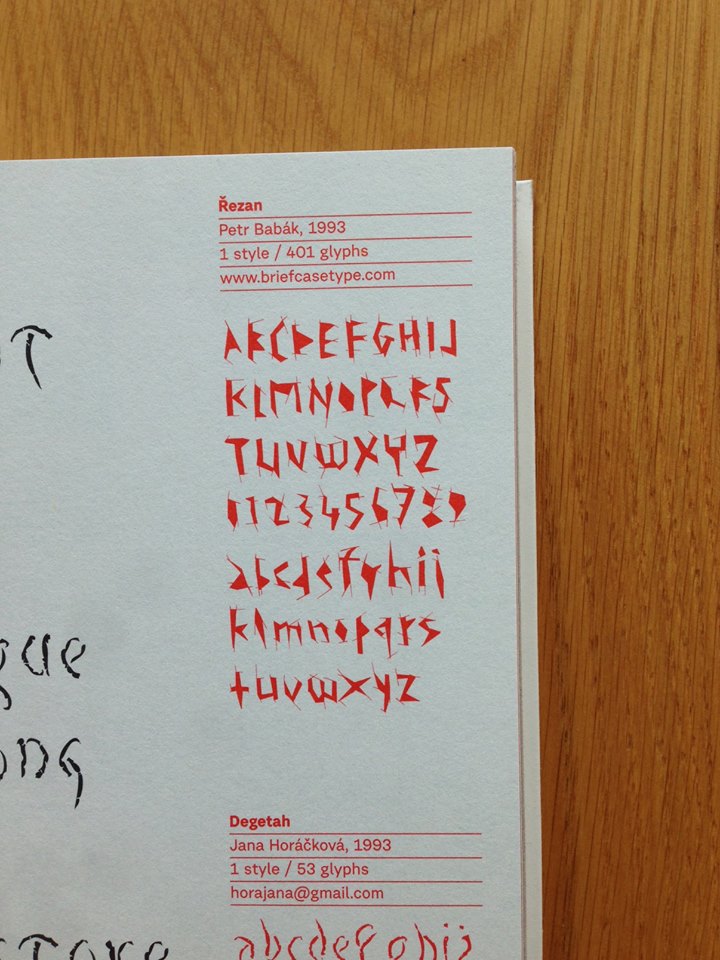 Řezan
Petr Babák, 1993
1 style / 401 glyphs
www.briefcasetype.com
ABCDEFGHIJ
KLMNOPQRS
TUVWXYZ
0123456789
abcdefghij
klmnopqrs
tuvwxyz
Degetah
Jana Horáčková, 1993
1 style / 53 glyphs
horajana@gmail.com
abcdefghij